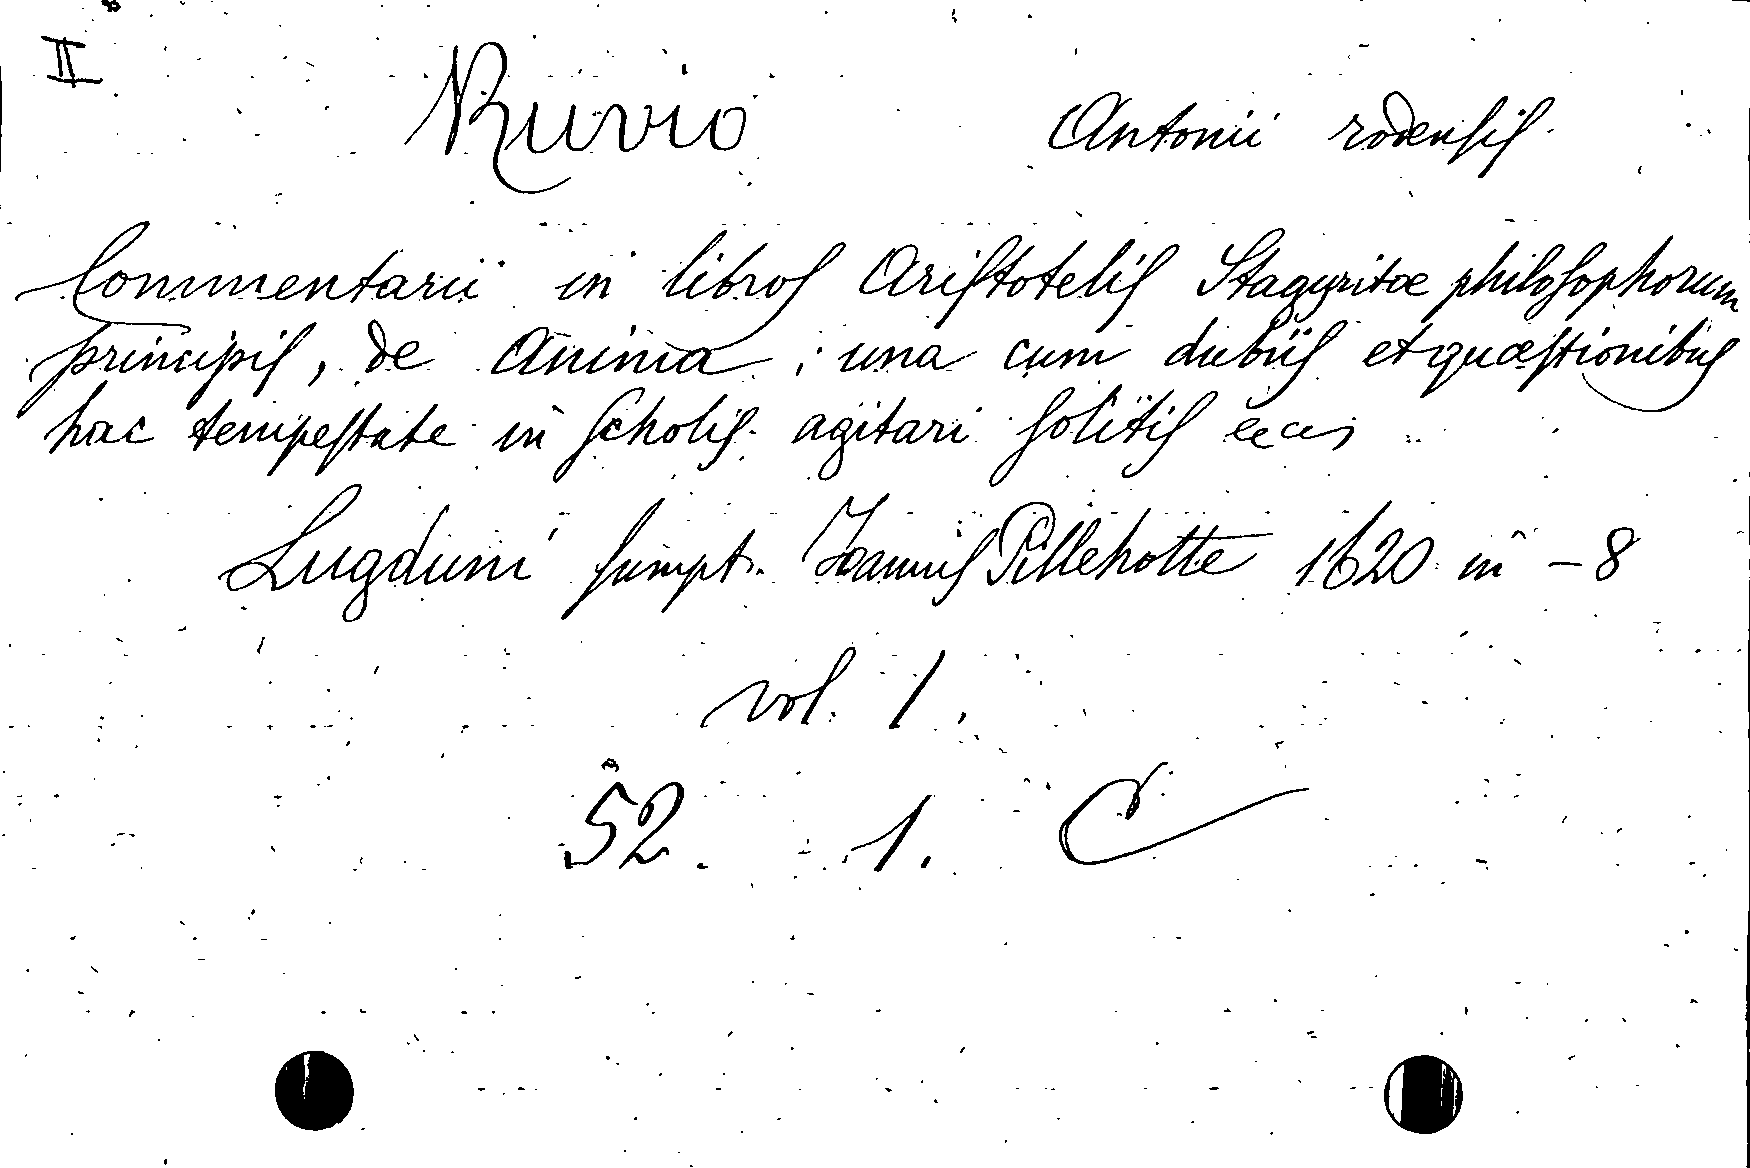 II
Ruvio Antonii rodensis
Commentarii in libros Aristotelis Stagyritæ philosophorum
principis, de Anima; una cum dubiis et quæstionibus
hac tempestate in scholis agitari solitis
Lugduni sumpt. Joannis Pillehotte 1620 in-8
vol. 1.
52. 1. C